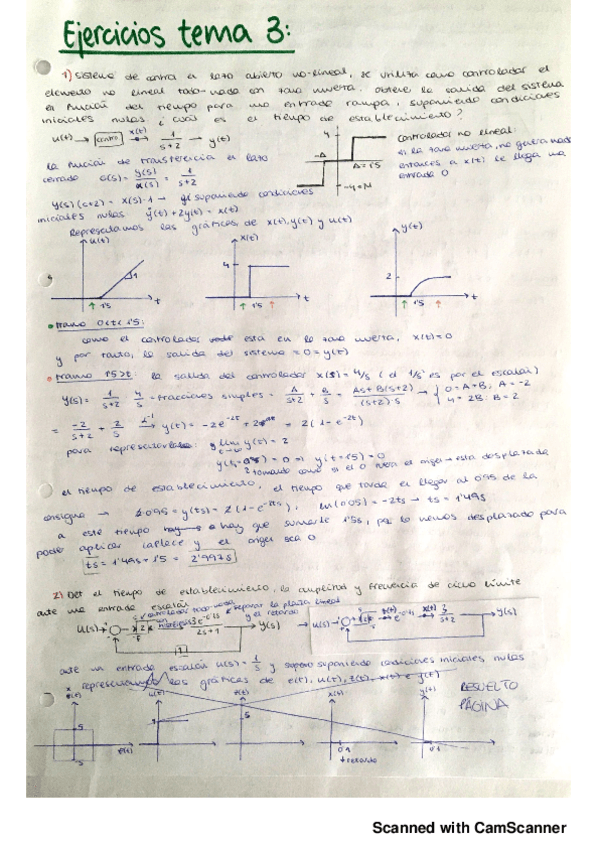 Ejercicios tema 3:
1) Sistema de control en lazo abierto no-lineal, se utiliza como controlador el
elemento no lineal todo-nada con zona muerta. Obtene la salida del sistema
en función del tiempo para una entrada rampa, suponiendo condiciones
iniciales nulas ¿cuál es el tiempo de establecimiento?
u(t) → → x(t) 1/s+2 → y(t)
4 -Δ Δ=1'5 -4=M
controlador no lineal:
en la zona muerta, no
entonces a x(t) le llega una
entrada 0
la función de transferencia en lazo
cerrado G(s)= y(s)/x(s) = 1/s+2
y(s)(s+2) = x(s)·1 → suponiendo condiciones
iniciales nulas ẏ(t)+2y(t) = x(t)
Representamos las gráficas de x(t), y(t) y u(t)
u(t) 1 1'5 t
x(t) 4 1'5 t
y(t) 2 1'5 t
tramo 0<t<1'5:
como el controlador está en la zona muerta, x(t)=0
y por tanto, la salida del sistema = 0 = y(t)
tramo 1'5>t: la salida del controlador x(s) = 4/s (el 1/s es por el escalón)
y(s)= 1/s+2 · 4/s = fracciones simples = A/s+2 + B/s = As+B(s+2)/(s+2)·s → { 0=A+B; A=-2 4=2B; B=2
= -2/s+2 + 2/s → y(t) = -2e^-2t + = 2(1-e^-2t)
para representarla: lim y(t) = 2
=0 ⇒ y(t=1'5) = 0
tomando como si el 0 fuera el origen → esta desplazada
el tiempo de establecimiento, el tiempo que tarda en llegar al 0'95 de la
consigna → = y(ts) = 2(1-e^-2ts); ln(0'05) = -2ts → ts = 1'49s
a este tiempo hay que sumarle 1'5s, por lo hemos desplazado para
poder aplicar laplace y el origen sea 0
ts = 1'49s+1'5 = 2'997s
2) Det el tiempo de establecimiento, la amplitud y frecuencia de ciclo límite
ante una entrada escalón
separar la planta lineal
y el retardo
u(s) → 2s+1 → y(s) → u(s) → x(t) 3/s+2 → y(s)
1
ante un entrada escalón u(s) = 1/s y suponiendo condiciones iniciales nulas
representando las gráficas de e(t), u(t), z(t), x(t) e y(t)
RESUELTO
PÁGINA
u(t) z(t) x(t) y(t)
5 1 5 0'1 0'1
retardo
Scanned with CamScanner